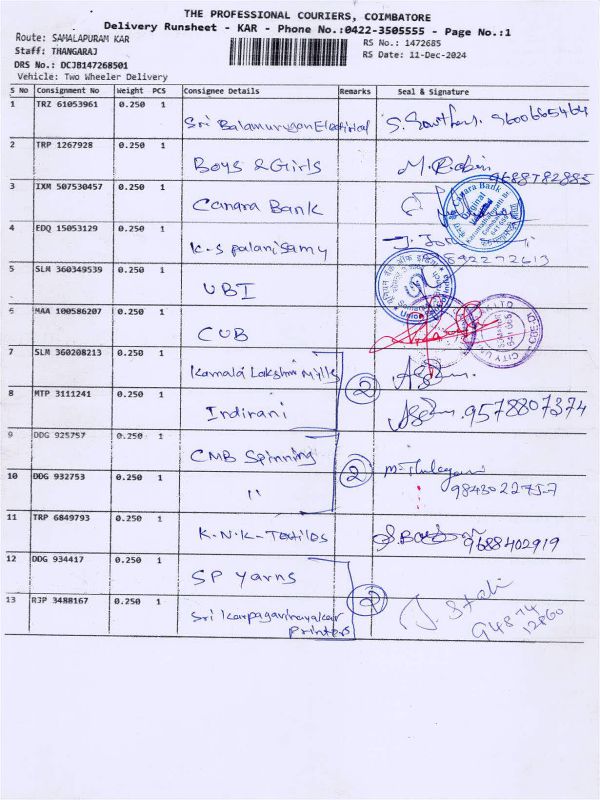 THE PROFESSIONAL COURIERS, COIMBATORE
Delivery Runsheet - KAR - Phone No.:0422-3505555 - Page No.:1
Route: SAMALAPURAM KAR
RS No.: 1472685
Staff: THANGARAJ
RS Date: 11-Dec-2024
DRS No.: DCJB147268501
Vehicle: Two Wheeler Delivery
S No Consignment No Weight PCS Consignee Details Remarks Seal & Signature
1 TRZ 61053961 0.250 1 Sri Balamurugan Electrical 9600665464
2 TRP 1267928 0.250 1 Boys & Girls 9688782885
3 IXM 507530457 0.250 1 Canara Bank
4 EDQ 15053129 0.250 1 K-S palanisamy
5 SLM 360349539 0.250 1 UBI
6 MAA 100586207 0.250 1 CUB
7 SLM 360208213 0.250 1 Kamala Lakshmi Mylls
2
8 MTP 3111241 0.250 1 Indirani 9578807374
9 DDG 925757 0.250 1 CMB Spinning
2
10 DDG 932753 0.250 1 "
11 TRP 6849793 0.250 1 K.N.K-Textiles 9688402919
12 DDG 934417 0.250 1 SP Yarns
2
13 RJP 3488167 0.250 1 Sri Karpagavinayakar
Printers
94874
12860